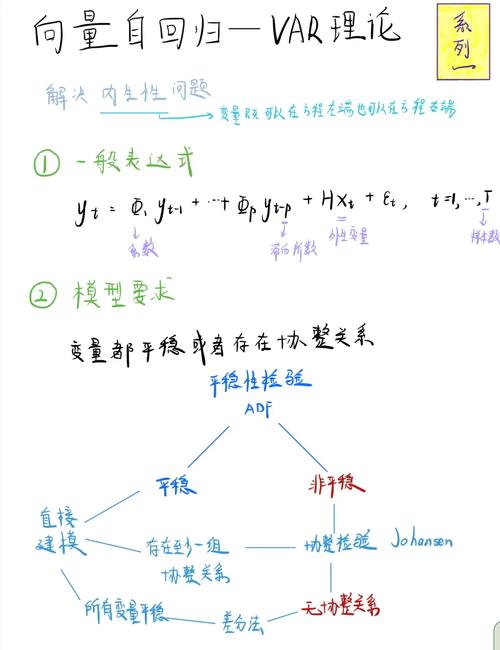 向量自回归—VAR理论
系列一
解决 内生性问题
变量既可以在方程左端也可以在方程右端
① 一般表达式
yt = Φ1 yt-1 + ⋯ + Φp yt-p + Hxt + εt, t=1,⋯,T
系数
滞后阶数
外生变量
样本数
② 模型要求
变量都平稳或者存在协整关系
平稳性检验
ADF
平稳
非平稳
直接
建模
存在至少一组
协整关系
协整检验
Johansen
所有变量平稳
差分法
无协整关系